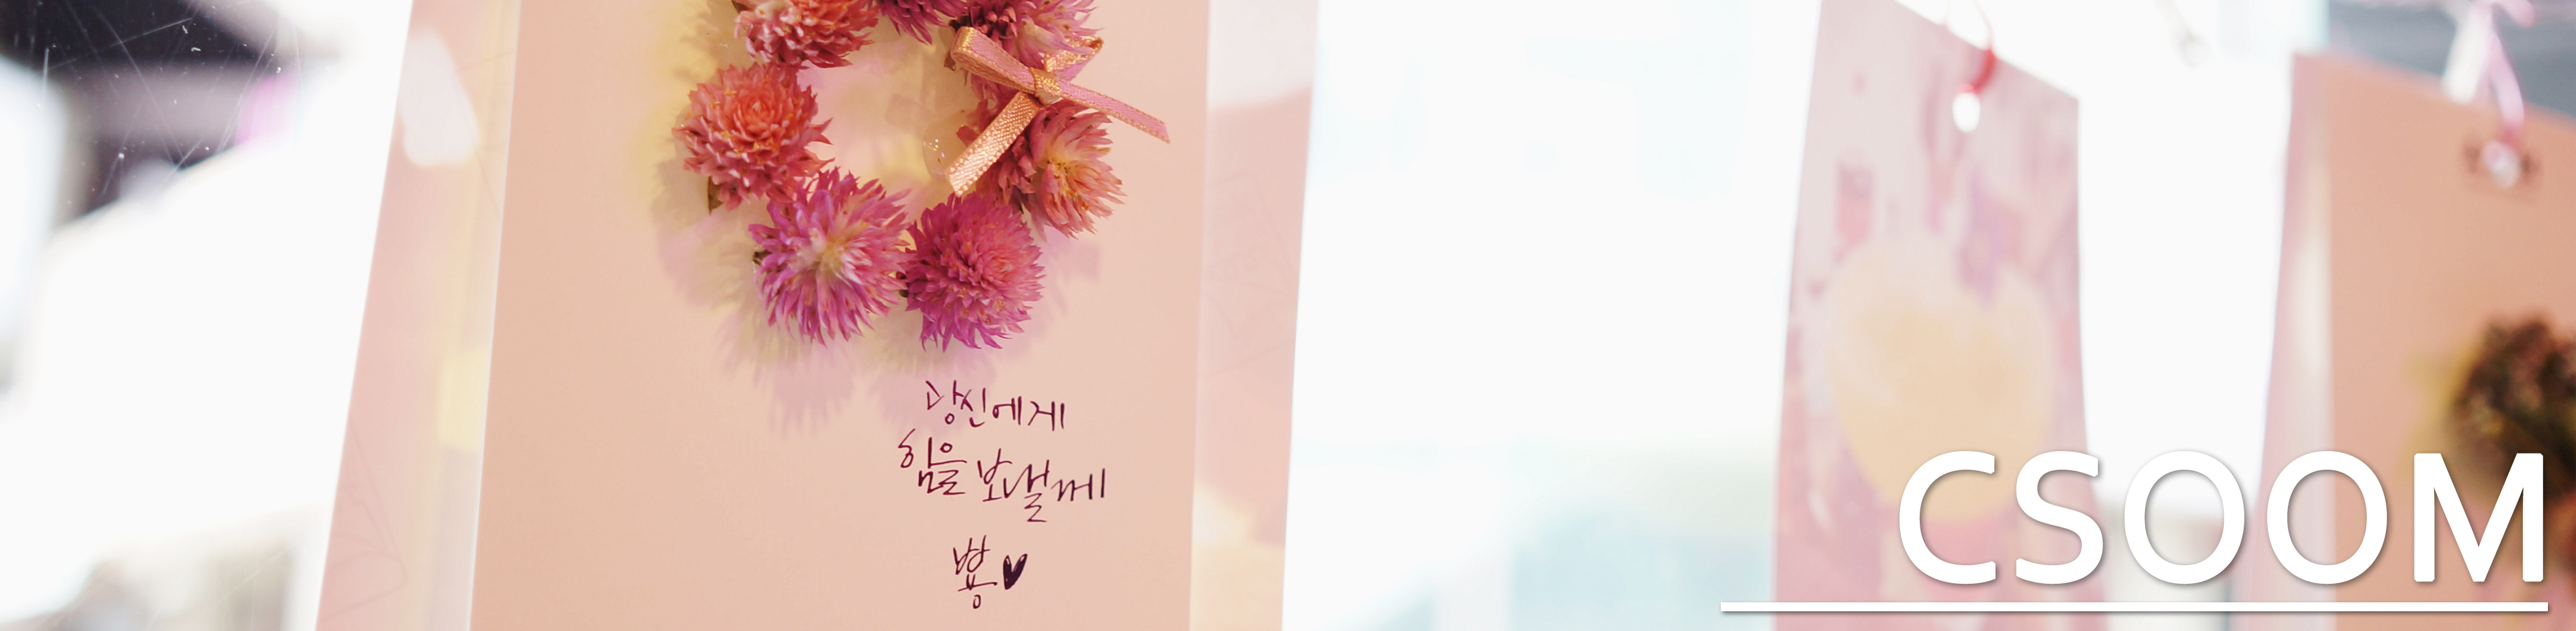 당신에게
힘을 보낼께
뿅♥
CSOOM